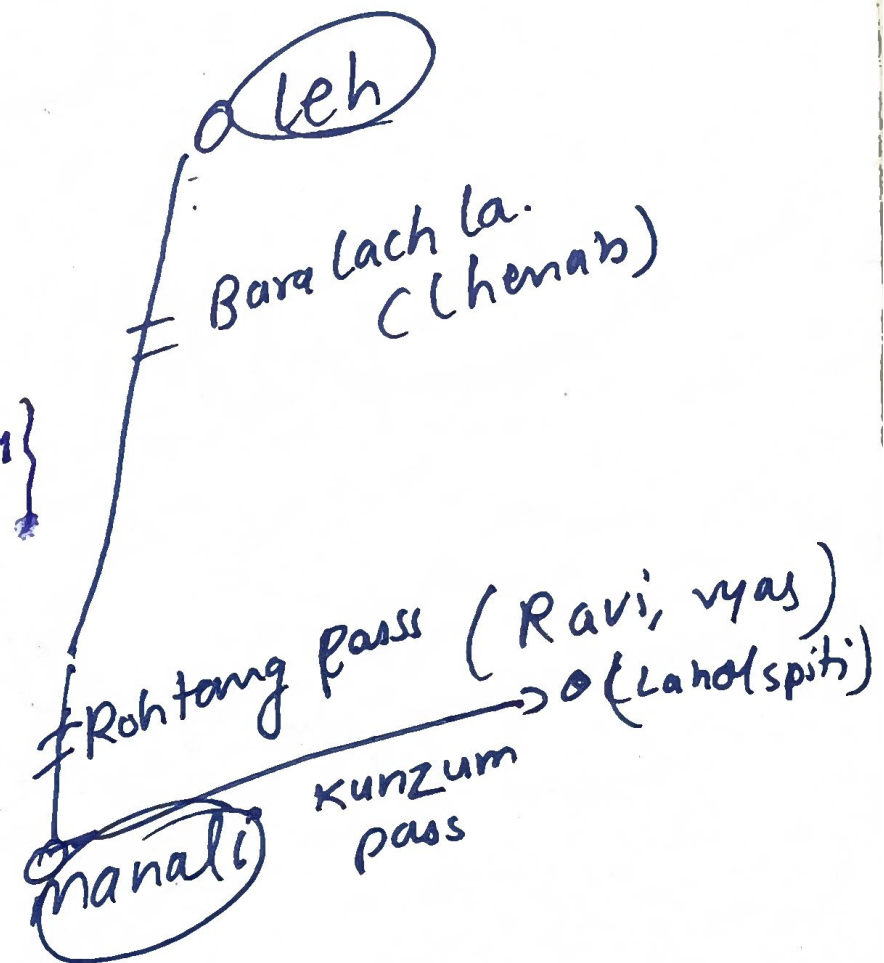 Leh
Bara lach la.
(Chenab)
}
Rohtang Pass (Ravi, vyas)
(Laholspiti)
Kunzum
pass
manali